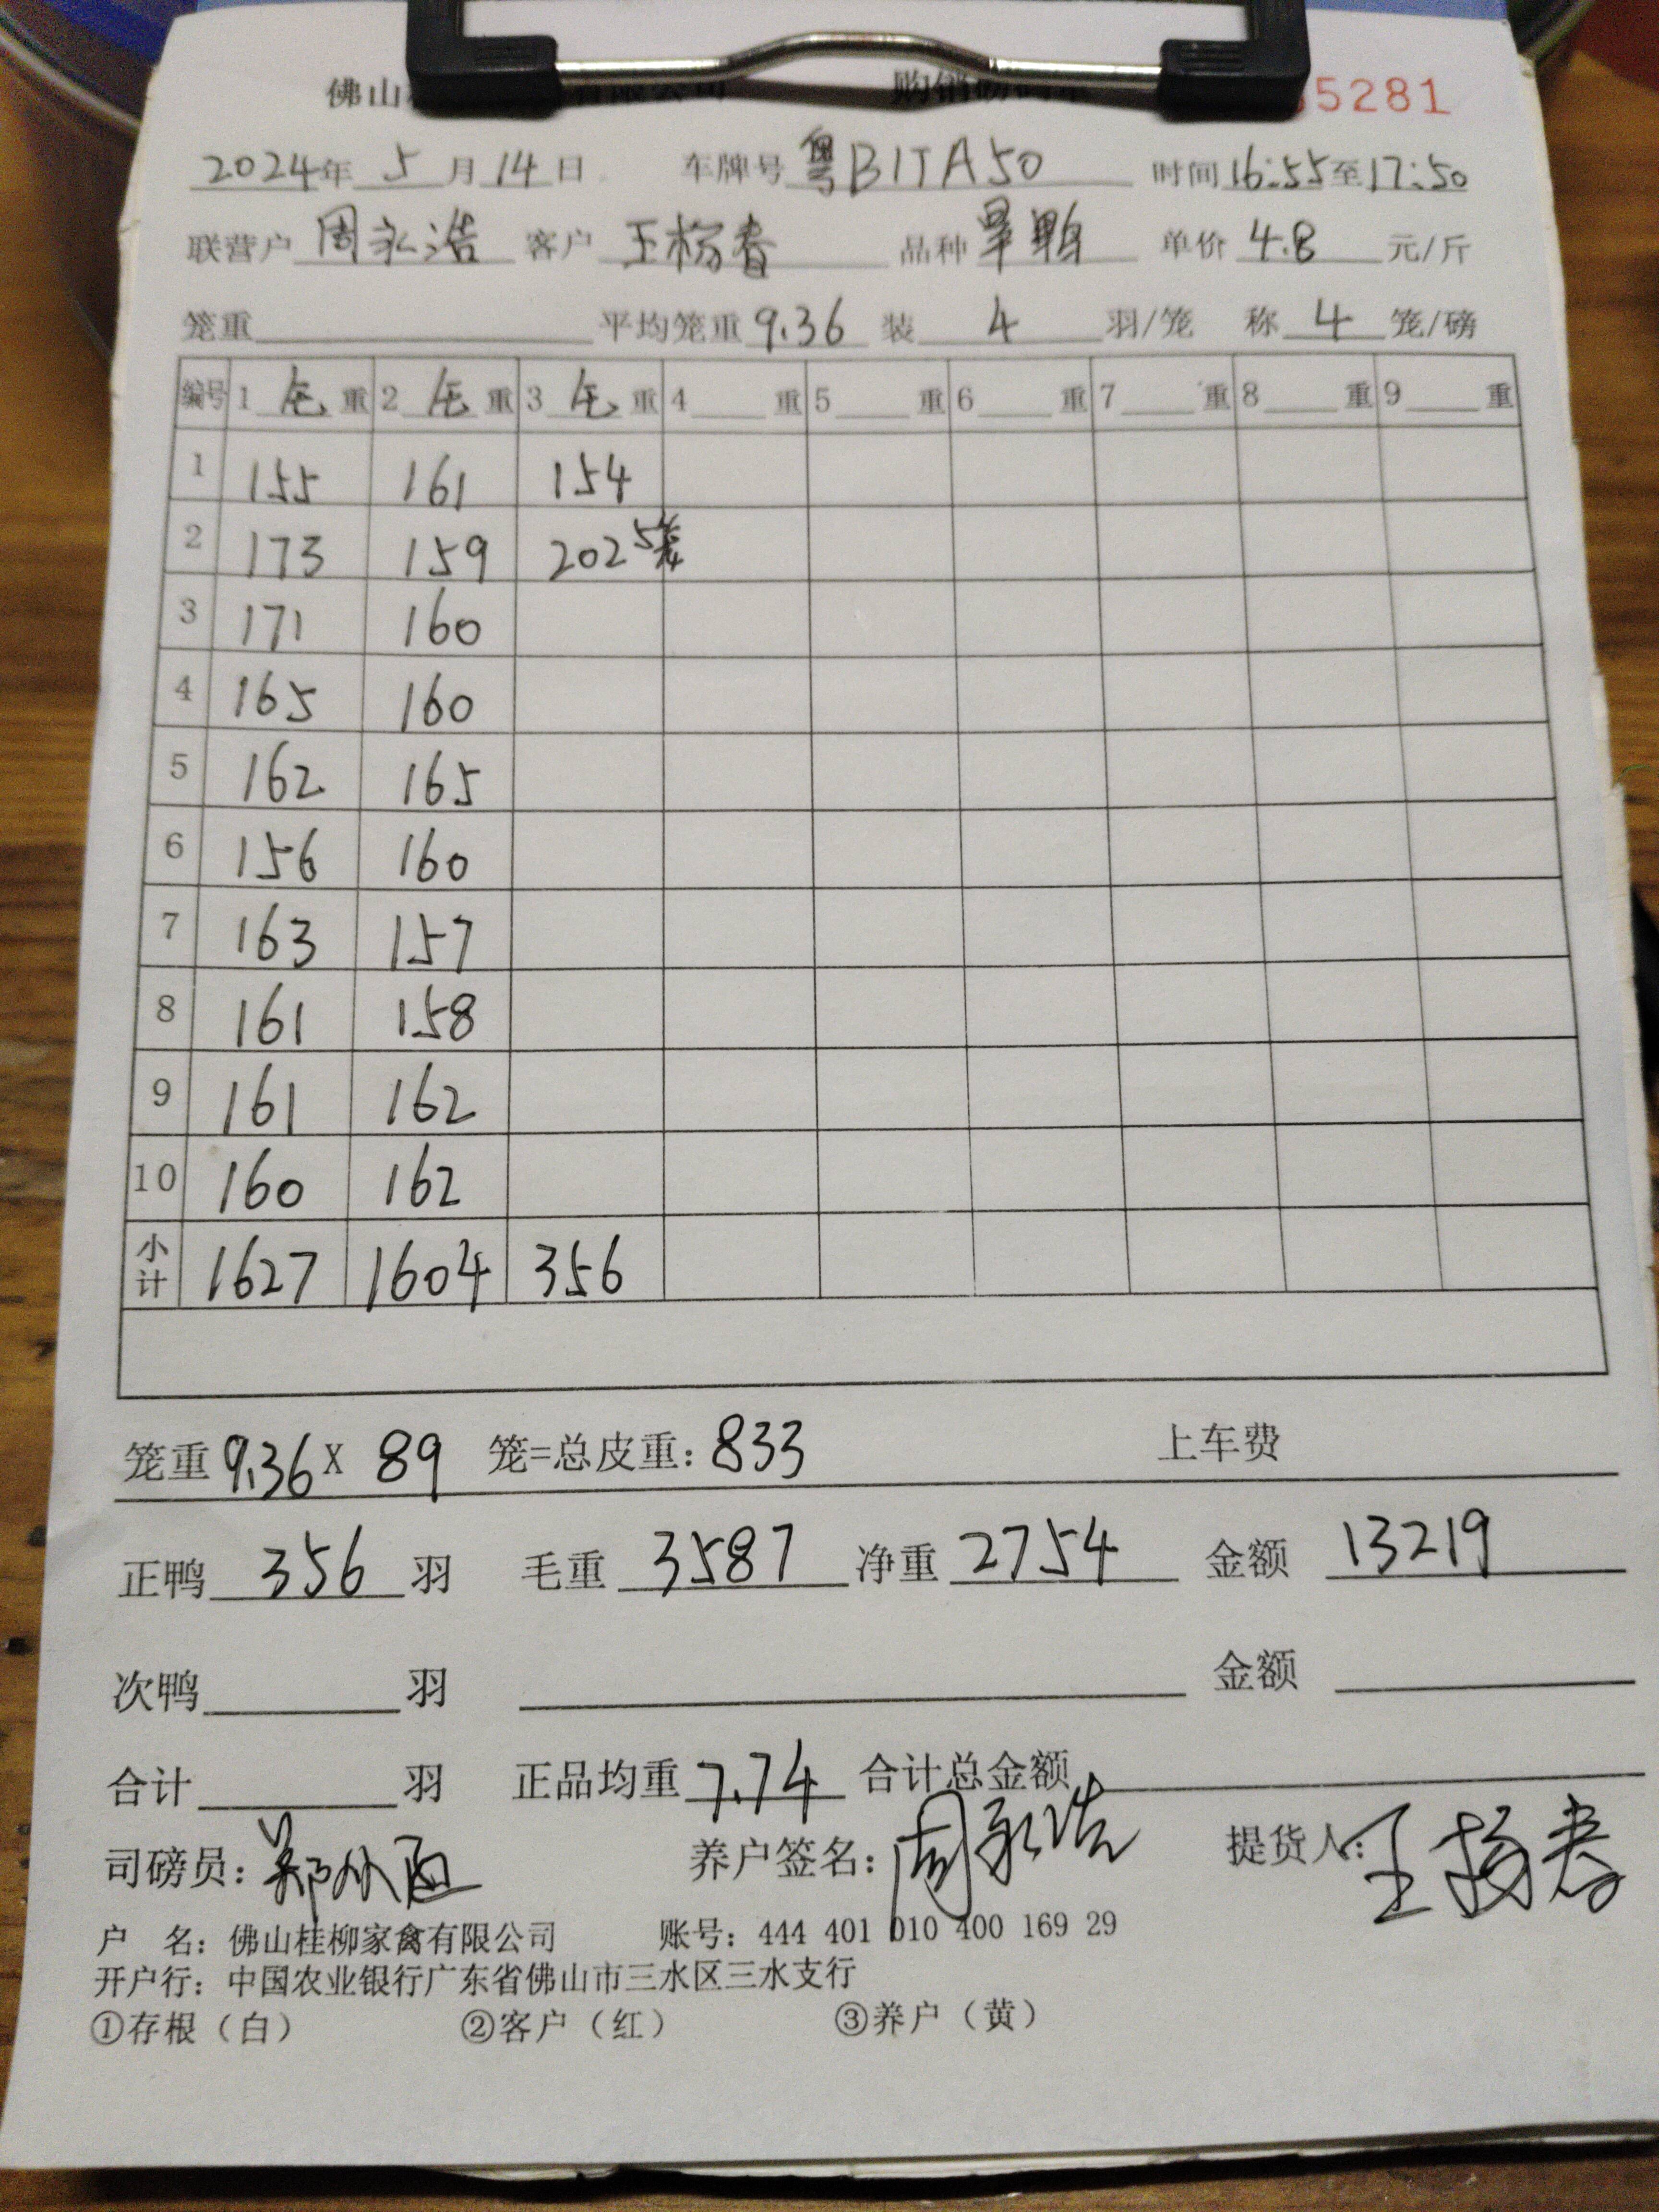 佛山 有限公司 购销磅码单 5281
2024年 5 月 14 日 车牌号 粤B1TA50 时间 16:55至17:50
联营户 周永浩 客户 王杨春 品种 旱鸭 单价 4.8 元/斤
笼重 平均笼重 9.36 装 4 羽/笼 称 4 笼/磅
编号 1 毛 重 2 毛 重 3 毛 重 4 重 5 重 6 重 7 重 8 重 9 重
1 155 161 154
2 173 159 202 5笼
3 171 160
4 165 160
5 162 165
6 156 160
7 163 157
8 161 158
9 161 162
10 160 162
小计 1627 1604 356
笼重 9.36 X 89 笼=总皮重: 833 上车费
正鸭 356 羽 毛重 3587 净重 2754 金额 13219
次鸭 羽 金额
合计 羽 正品均重 7.74 合计总金额
司磅员: 养户签名: 周永浩 提货人: 王杨春
户 名: 佛山桂柳家禽有限公司 账号: 444 401 010 400 169 29
开户行: 中国农业银行广东省佛山市三水区三水支行
①存根（白） ②客户（红） ③养户（黄）